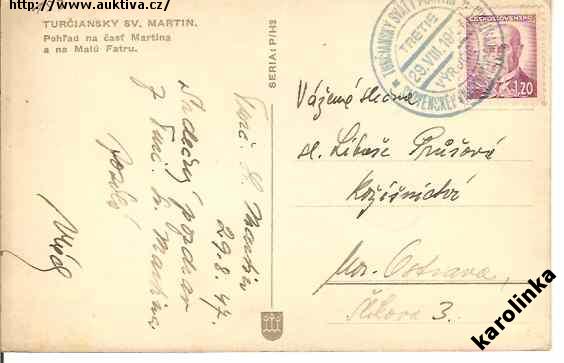 http://www.auktiva.cz/
TURČIANSKY SV. MARTIN.
Pohľad na časť Martina
a na Malú Fatru.
SERIA: P/H3
Turč. S. Martin
29.8.47
Srdečný pozdrav
z Turč. S. Martina
posílá
TURČIANSKY SVÄTÝ MARTIN
TRETIE
29.VIII.194
VÝROČIE
SLOVENSKÉHO
ČESKOSLOVENSKO
1.20
Vážená slečna
sl. Libuše Průšová
Kožišnictví
Mor. Ostrava
3.
karolinka